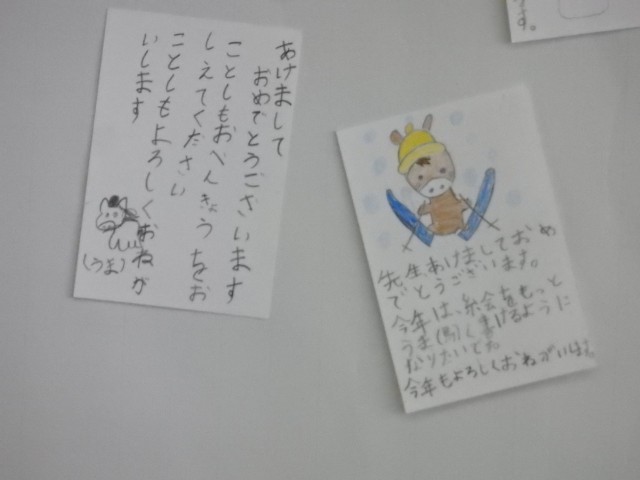 あけまして
おめでとうございます
ことしもおべんきょうをお
しえてください
ことしもよろしくおねが
いします
(うま)
先生あけましておめ
でとうございます。
今年は、絵をもっと
うま(馬)く書けるように
なりたいです。
今年もよろしくおねがいします。
す。